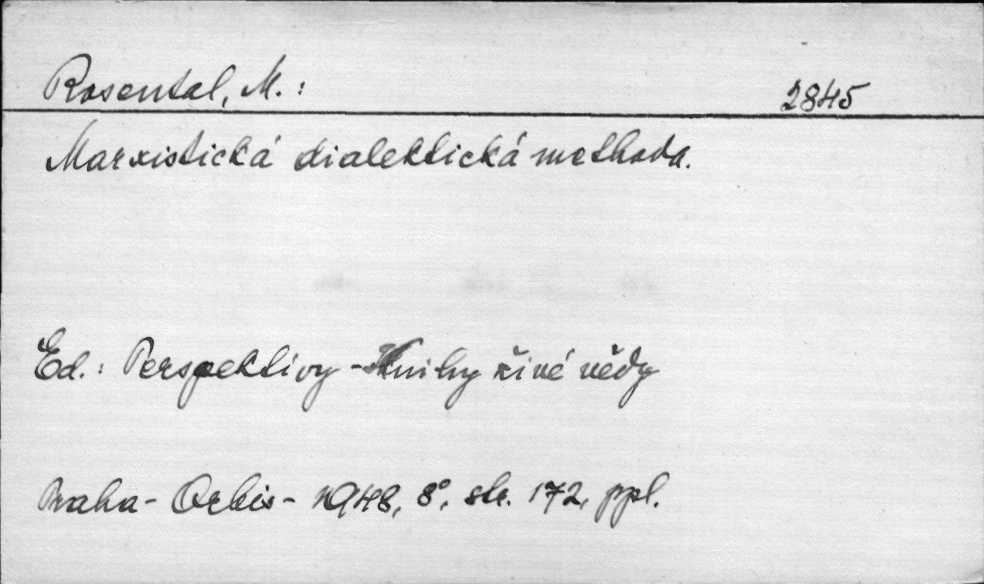 Rosental, M.: 2845
Marxistická dialektická methoda.
Ed.: Perspektivy - Knihy živé vědy
Praha - Orbis - 1948, 8°, str. 172, ppl.